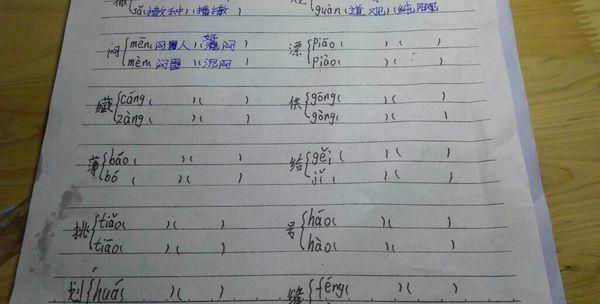 撒 sǎ(撒种)(播撒) 观 guàn(道观)(
闷 mēn(闷人)( 闷) 漂 piāo(
mèn(闷雷)(沉闷) piào(
藏 cáng( )( ) 供 gōng( )( )
zàng( )( ) gòng( )( )
薄 báo( )( ) 给 gěi( )( )
bó( )( ) jǐ( )( )
挑 tiāo( )( ) 号 háo( )( )
tiǎo( )( ) hào( )( )
划 huá( )( ) 缝 féng( )